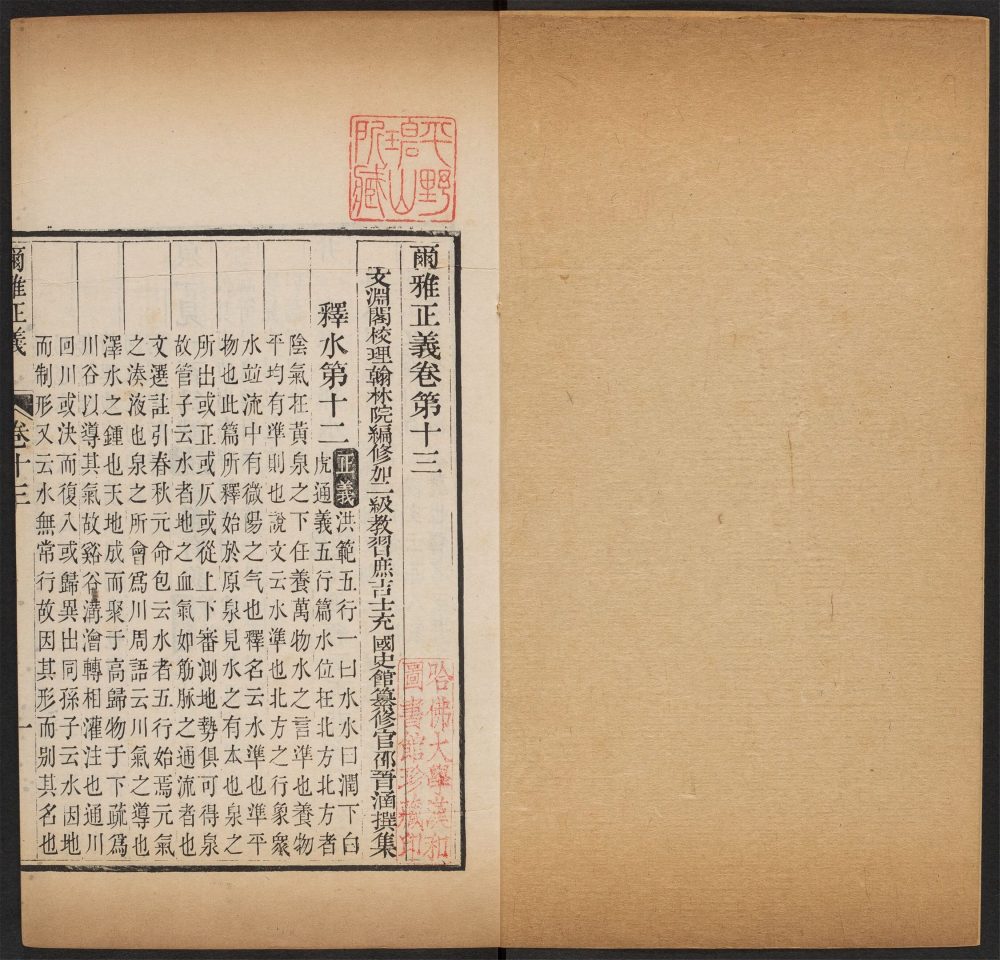 平野
碧山
所藏
爾雅正義卷第十三
文淵閣校理翰林院編修加二級教習庶吉士充國史館纂修官邵晉涵撰集
釋水第十二 正義 洪範五行一曰水水曰潤下白
虎通義五行篇水位在北方北方者
陰氣在黃泉之下任養萬物水之言準也養物
平均有準則也說文云水準也北方之行象衆
水並流中有微陽之气也釋名云水準也準平
物也此篇所釋始於原泉見水之有本也泉之
所出或正或仄或從上下審測地勢俱可得泉
故管子云水者地之血氣如筋脈之通流者也
文選註引春秋元命包云水者五行始焉元氣
之湊液也泉之所會爲川周語云川氣之導也
澤水之鍾也天地成而聚于高歸物于下疏爲
川谷以導其氣故谿谷溝澮轉相灌注也通川
回川或決而復入或歸異出同孫子云水因地
而制形又云水無常行故因其形而别其名也
爾雅正義 卷十三 一
哈佛大學漢和
圖書館珍藏印